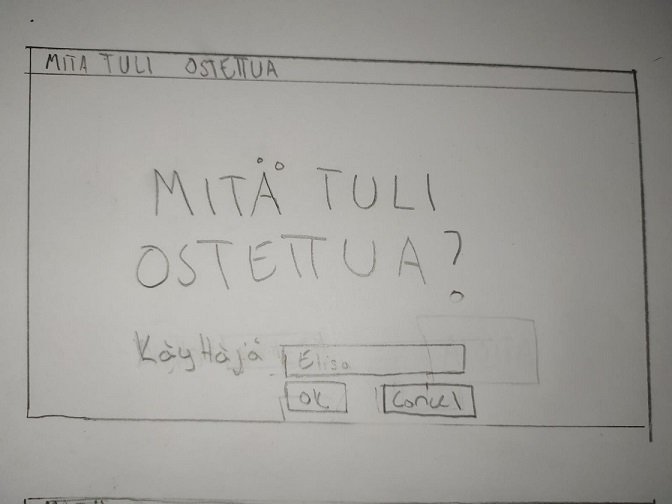 MITÄ TULI OSTETTUA
MITÄ TULI
OSTETTUA?
Käyttäjä Elisa
OK Cancel